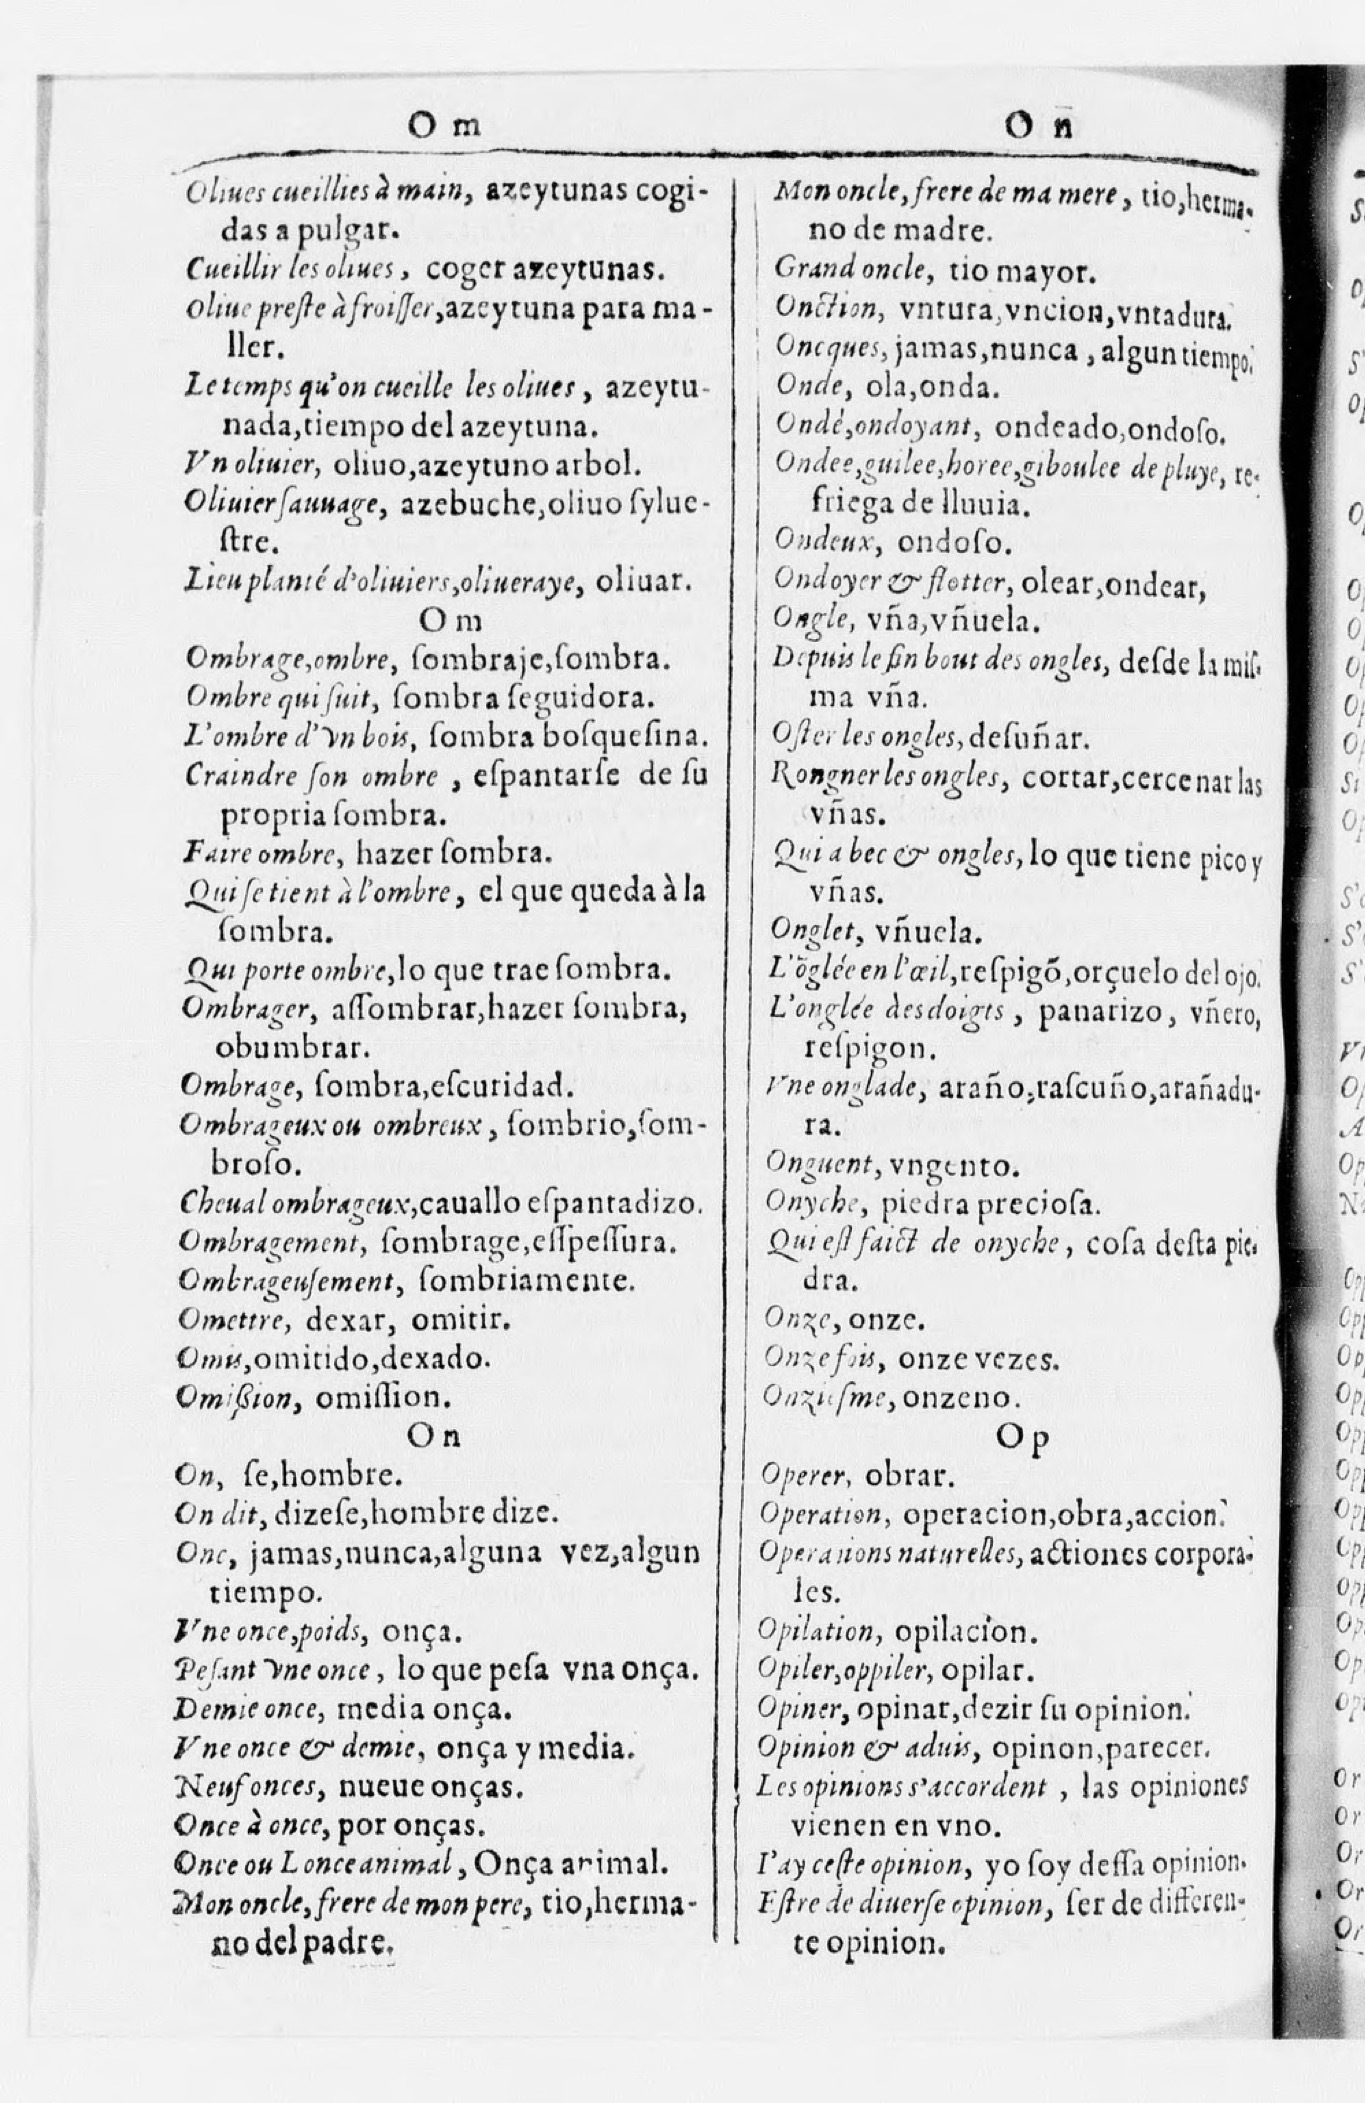 O m
O n
Oliues cueillies à main, azeytunas cogi-
das a pulgar.
Cueillir les oliues, coger azeytunas.
Oliue preſte à froiſſer, azeytuna para ma-
ller.
Le temps qu'on cueille les oliues, azeytu-
nada, tiempo del azeytuna.
Vn oliuier, oliuo, azeytuno arbol.
Oliuier ſauuage, azebuche, oliuo ſylue-
ſtre.
Lieu planté d'oliuiers, oliueraye, oliuar.
O m
Ombrage, ombre, ſombraje, ſombra.
Ombre qui ſuit, ſombra ſeguidora.
L'ombre d'vn bois, ſombra boſqueſina.
Craindre ſon ombre, eſpantarſe de ſu
propria ſombra.
Faire ombre, hazer ſombra.
Qui ſe tient à l'ombre, el que queda à la
ſombra.
Qui porte ombre, lo que trae ſombra.
Ombrager, aſſombrar, hazer ſombra,
obumbrar.
Ombrage, ſombra, eſcuridad.
Ombrageux ou ombreux, ſombrio, ſom-
broſo.
Cheual ombrageux, cauallo eſpantadizo.
Ombragement, ſombrage, eſſpeſſura.
Ombrageuſement, ſombriamente.
Omettre, dexar, omitir.
Omis, omitido, dexado.
Omiſsion, omiſſion.
O n
On, ſe, hombre.
On dit, dizeſe, hombre dize.
Onc, jamas, nunca, alguna vez, algun
tiempo.
Vne once, poids, onça.
Peſant vne once, lo que peſa vna onça.
Demie once, media onça.
Vne once & demie, onça y media.
Neuf onces, nueue onças.
Once à once, por onças.
Once ou Lonce animal, Onça animal.
Mon oncle, frere de mon pere, tio, herma-
no del padre.
Mon oncle, frere de ma mere, tio, herma-
no de madre.
Grand oncle, tio mayor.
Onction, vntura, vncion, vntadura.
Oncques, jamas, nunca, algun tiempo.
Onde, ola, onda.
Ondé, ondoyant, ondeado, ondoſo.
Ondee, guilee, horee, giboulee de pluye, re-
friega de lluuia.
Ondeux, ondoſo.
Ondoyer & flotter, olear, ondear,
Ongle, vña, vñuela.
Depuis le fin bout des ongles, deſde la miſ-
ma vña.
Oſter les ongles, deſuñar.
Rongner les ongles, cortar, cercenar las
vñas.
Qui a bec & ongles, lo que tiene pico y
vñas.
Onglet, vñuela.
L'õglée en l'œil, reſpigõ, orçuelo del ojo.
L'onglée des doigts, panarizo, vñero,
reſpigon.
Vne onglade, araño, raſcuño, arañadu-
ra.
Onguent, vngento.
Onyche, piedra precioſa.
Qui eſt faict de onyche, coſa deſta pie-
dra.
Onze, onze.
Onze fois, onze vezes.
Onzieſme, onzeno.
O p
Operer, obrar.
Operation, operacion, obra, accion.
Operations naturelles, actiones corpora-
les.
Opilation, opilacion.
Opiler, oppiler, opilar.
Opiner, opinar, dezir ſu opinion.
Opinion & aduis, opinon, parecer.
Les opinions s'accordent, las opiniones
vienen en vno.
I'ay ceſte opinion, yo ſoy deſſa opinion.
Eſtre de diuerſe opinion, ſer de differen-
te opinion.